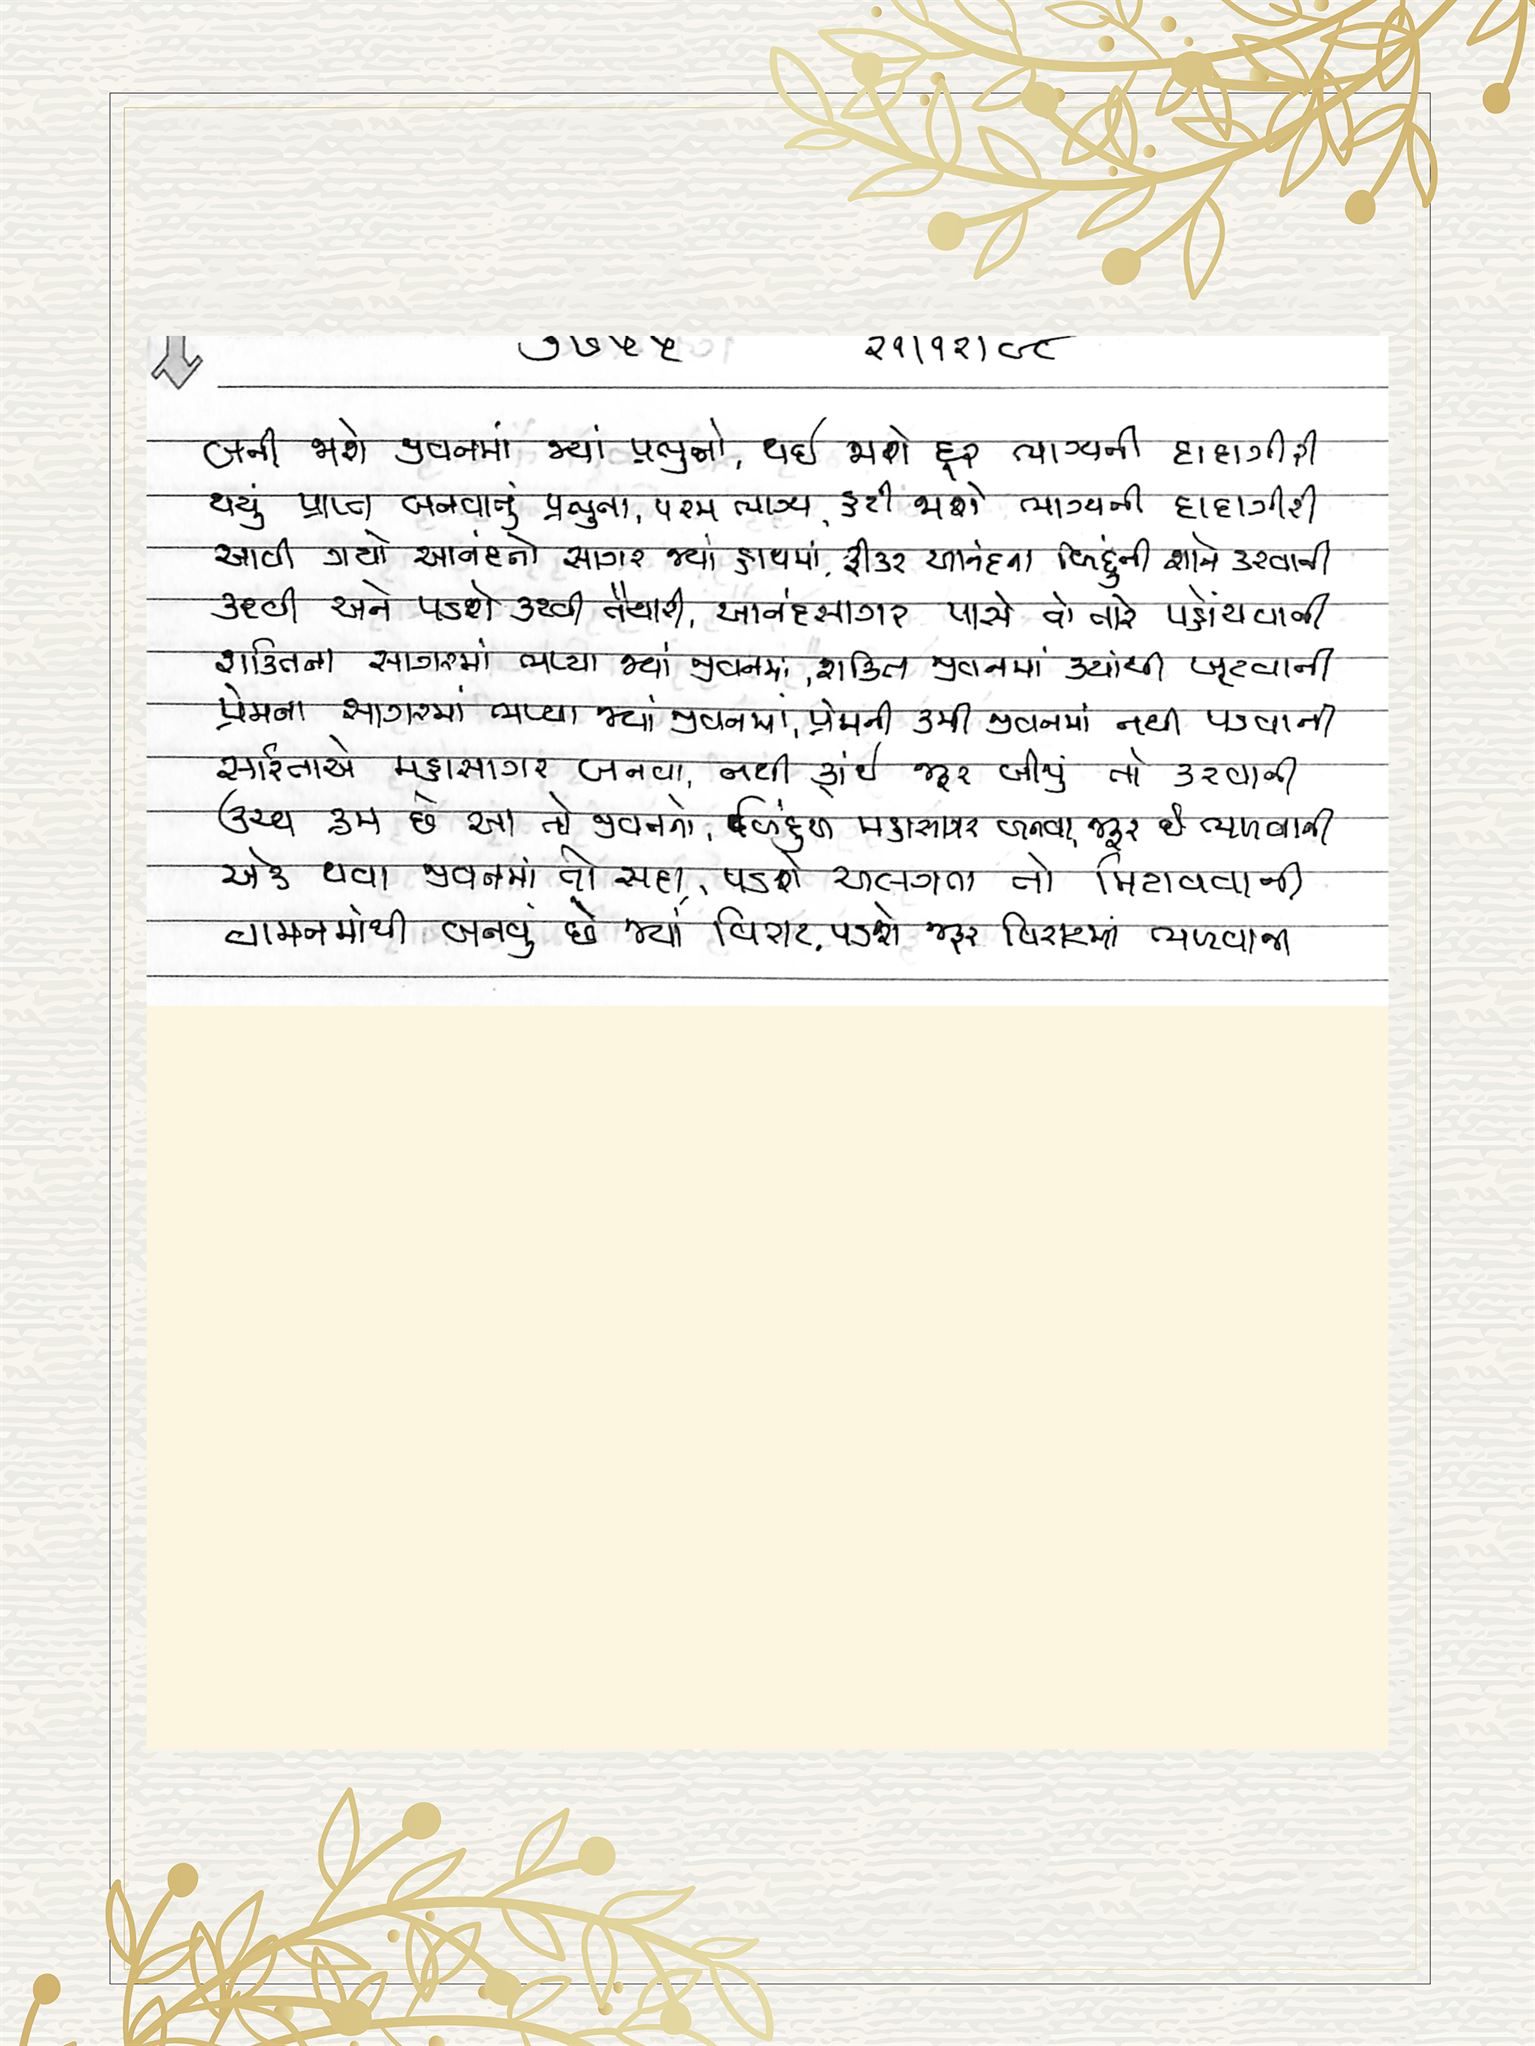 ૭૭૫૫ ૨૧/૧૨/૯૮
બની જાશે જીવનમાં જ્યાં પ્રભુનો, થઈ જાશે દૂર ભાગ્યની દાદાગીરી
થયું પ્રાપ્ત બનવાનું પ્રભુના, પરમ ભાગ્ય, તૂટી જાશે ભાગ્યની દાદાગીરી
આવી ગયો આનંદનો સાગર જ્યાં હાથમાં, ફીકર આનંદના બિંદુની શાને કરવાની
કરવી અને પડશે કરવી તૈયારી, આનંદસાગર પાસે તો તારે પહોંચવાની
શક્તિના સાગરમાં ભળ્યા જ્યાં જીવનમાં, શક્તિ જીવનમાં ક્યાંથી ખૂટવાની
પ્રેમના સાગરમાં ભળ્યા જ્યાં જીવનમાં, પ્રેમની કમી જીવનમાં નથી પડવાની
સરિતાએ મહાસાગર બનવા, નથી કાંઈ જરૂર બીજું તો કરવાની
ઉચ્ચ ક્રમ છે આ તો જીવનનો, બિંદુએ મહાસાગર બનવા, જરૂર છે ભળવાની
એક થવા જીવનમાં તો સદા, પડશે અલગતા તો મિટાવવાની
વામનમાંથી બનવું છે જ્યાં વિરાટ, પડશે જરૂર વિરાટમાં ભળવાની